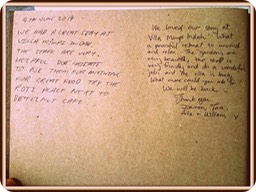 9TH JUNE 2014
WE HAD A GREAT STAY AT
VILLA MIMPI INDAH.
THE STAFF ARE VERY
HELPFUL DON'T HESITATE
TO ASK THEM FOR ANYTHING
FOR GREAT FOOD TRY THE
ROTI PLACE NEXT TO
CAFE
We loved our stay at
Villa Mimpi Indah. What
a peaceful retreat to unwind
and relax. The gardens are
very beautiful, the staff is
very friendly and do a wonderful
job, and the villa is lovely.
What more could you ask for?
We will be back
Thank you
& William